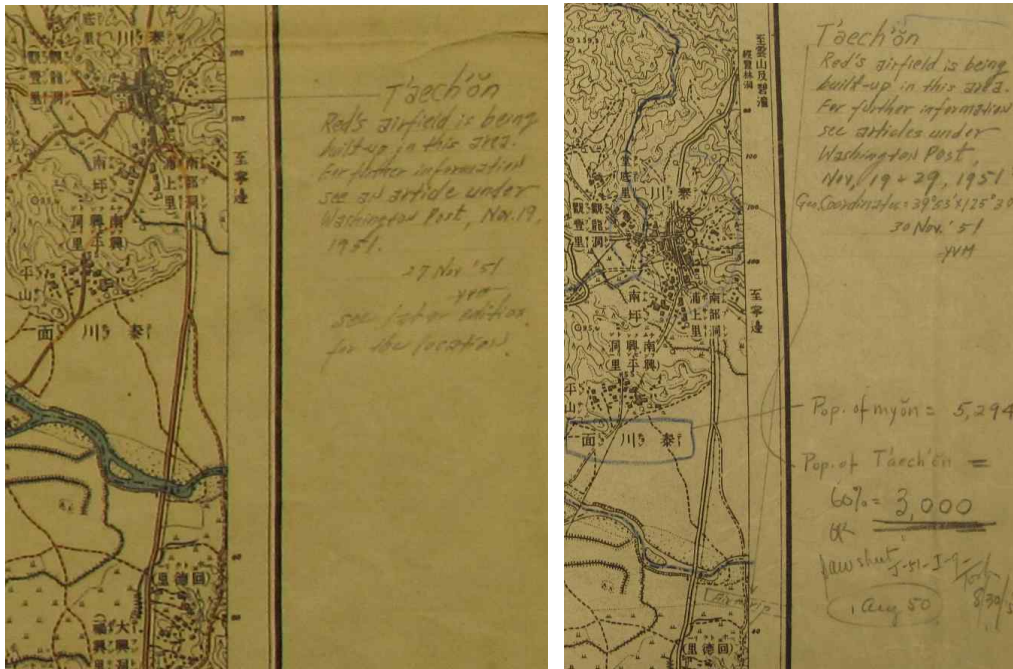 泰川
底里
觀豊里
觀龍洞
100
100
南坪
浦上里
南部洞
至寧邊
洞
(南興平里)
平山
泰川面
回德里
大興洞
(福興里)
40
T'aech'ŏn
Red's airfield is being
built-up in this area.
For further information
see an article under
Washington Post, Nov. 19,
1951.
27 Nov. '51
see later edition
for the location.
至雲山及碧潼
經豐林洞
堂底里
泰川
100
100
觀豊里
觀龍洞
南坪
浦上里
南部洞
至寧邊
洞
(南興平里)
平山
泰川面
(回德里)
40
Airstrip
T'aech'ŏn
Red's airfield is being
built-up in this area.
For further information
see articles under
Washington Post,
Nov. 19 & 29, 1951
Geo. Coordinates = 39°53'N 125°30
30 Nov. '51
Pop. of myŏn = 5,294
Pop. of T'aech'ŏn =
60% = 3,000
OK
1 Aug 50